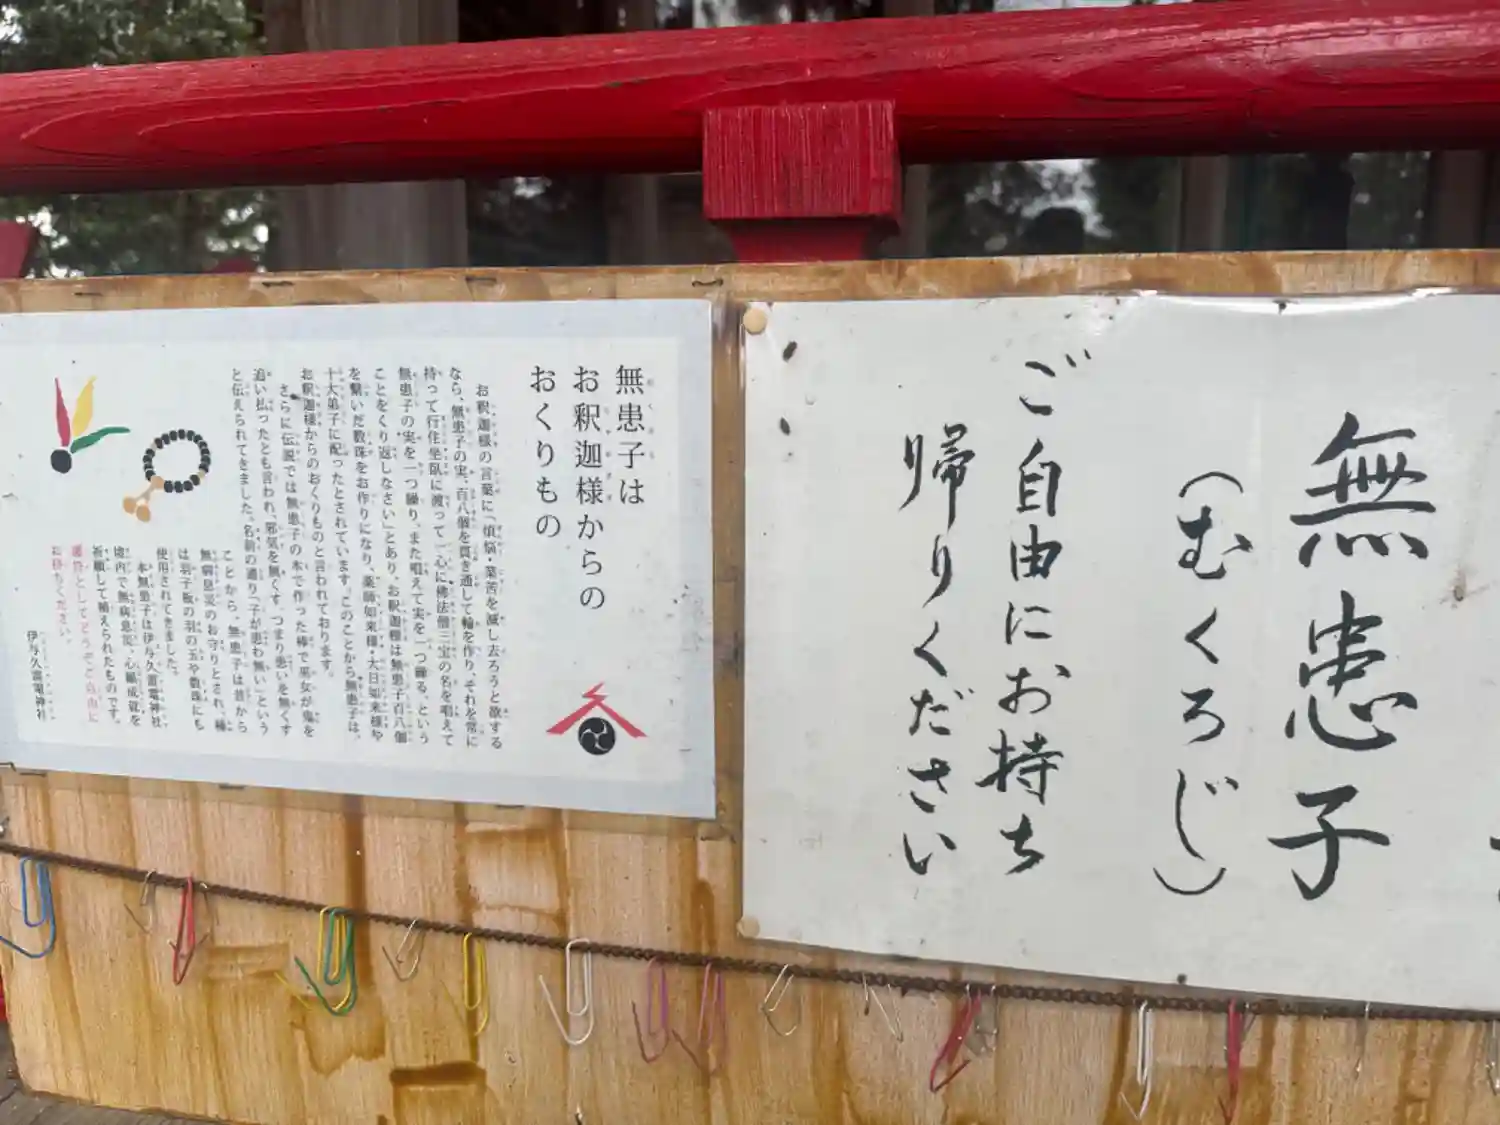 無患子
（むくろじ）
ご自由にお持ち
帰りください
無患子は
お釈迦様からの
おくりもの
お釈迦様の言葉に「煩悩・業苦を滅し去ろうと欲する
なら、無患子の実、百八個を貫き通して輪を作り、それを常に
持って行住坐臥に渡って一心に佛法僧三宝の名を唱えて
無患子の実を一つ繰り、また唱えて実を一つ繰る、という
ことをくり返しなさい」とあり、お釈迦様は無患子百八個
を繋いだ数珠をお作りになり、薬師如来様・大日如来様や
十大弟子に配ったとされています。このことから無患子は、
お釈迦様からのおくりものと言われております。
さらに伝説では無患子の木で作った棒で巫女が鬼を
追い払ったとも言われ、邪気を無くす、つまり患いを無くす
と伝えられてきました。名前の通り「子が患わ無い」という
ことから、無患子は昔から
無病息災のお守りとされ、
は羽子板の羽の玉や数珠にも
使用されてきました。
本無患子は伊与久雷電神社
境内で無病息災、心願成就を
祈願して植えられたものです。
としてどうぞご自由に
お持ちください。
伊与久雷電神社